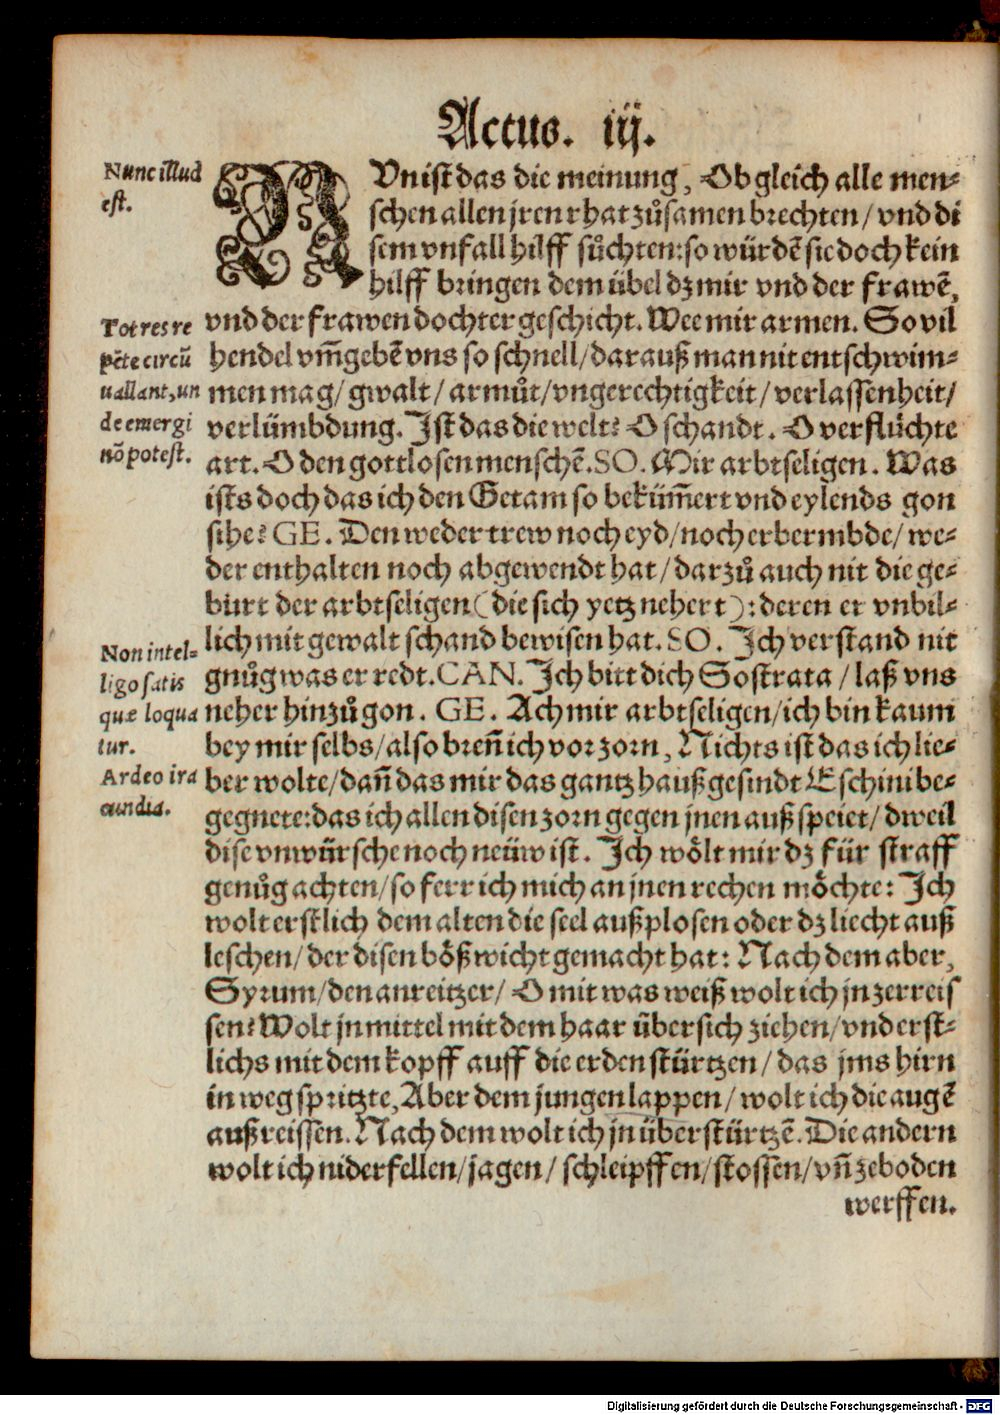 Actus. iij.
Nunc illud
est.
NVn ist das die meinung, Ob gleich alle men-
schen allen jren rhat zůsamen brechten/ vnd di
sem vnfall hilff sůchten: so würdẽ sie doch kein
hilff bringen dem übel dz mir vnd der frawẽ,
Tot res re
pẽte circũ
uallant, un
de emergi
nõ potest.
vnd der frawen dochter geschicht. Wee mir armen. So vil
hendel vm̃gebẽ vns so schnell/ darauß man nit entschwim-
men mag/ gwalt/ armůt/ vngerechtigkeit/ verlassenheit/
verlümbdung. Ist das die welt? O schandt. O verflůchte
art. O den gottlosen menschẽ. SO. Mir arbtseligen. Was
ists doch das ich den Getam so beküm̃ert vnd eylends gon
sihe? GE. Den weder trew noch eyd/ noch erbermbde/ we-
der enthalten noch abgewendt hat/ darzů auch nit die ge-
burt der arbtseligen (die sich yetz nehert): deren er vnbil-
Non intel-
ligo satis
quæ loqua
tur.
Ardeo ira
cundia.
lich mit gewalt schand bewisen hat. SO. Ich verstand nit
gnůg was er redt. CAN. Ich bitt dich Sostrata/ laß vns
neher hinzů gon. GE. Ach mir arbtseligen/ ich bin kaum
bey mir selbs/ also breñ ich vor zorn, Nichts ist das ich lie-
ber wolte/ dañ das mir das gantz haußgesindt Eschini be-
gegnete: das ich allen disen zorn gegen jnen auß speiet/ dweil
dise vnwürsche noch neüw ist. Ich wölt mir dz für straff
genůg achten/ so ferr ich mich an jnen rechen möchte: Ich
wolt erstlich dem alten die seel außplosen oder dz liecht auß
leschen/ der disen bößwicht gemacht hat: Nach dem aber,
Syrum/ den anreitzer/ O mit was weiß wolt ich jn zerreis
sen? Wolt jn mittel mit dem haar über sich ziehen/ vnd erst-
lichs mit dem kopff auff die erden stürtzen/ das jms hirn
in weg spritzte, Aber dem jungen lappen/ wolt ich die augẽ
auß reissen. Nach dem wolt ich jn überstürtzẽ. Die andern
wolt ich niderfellen/ jagen/ schleipffen/ stossen/ vñ ze boden
werffen.
Digitalisierung gefördert durch die Deutsche Forschungsgemeinschaft - DFG